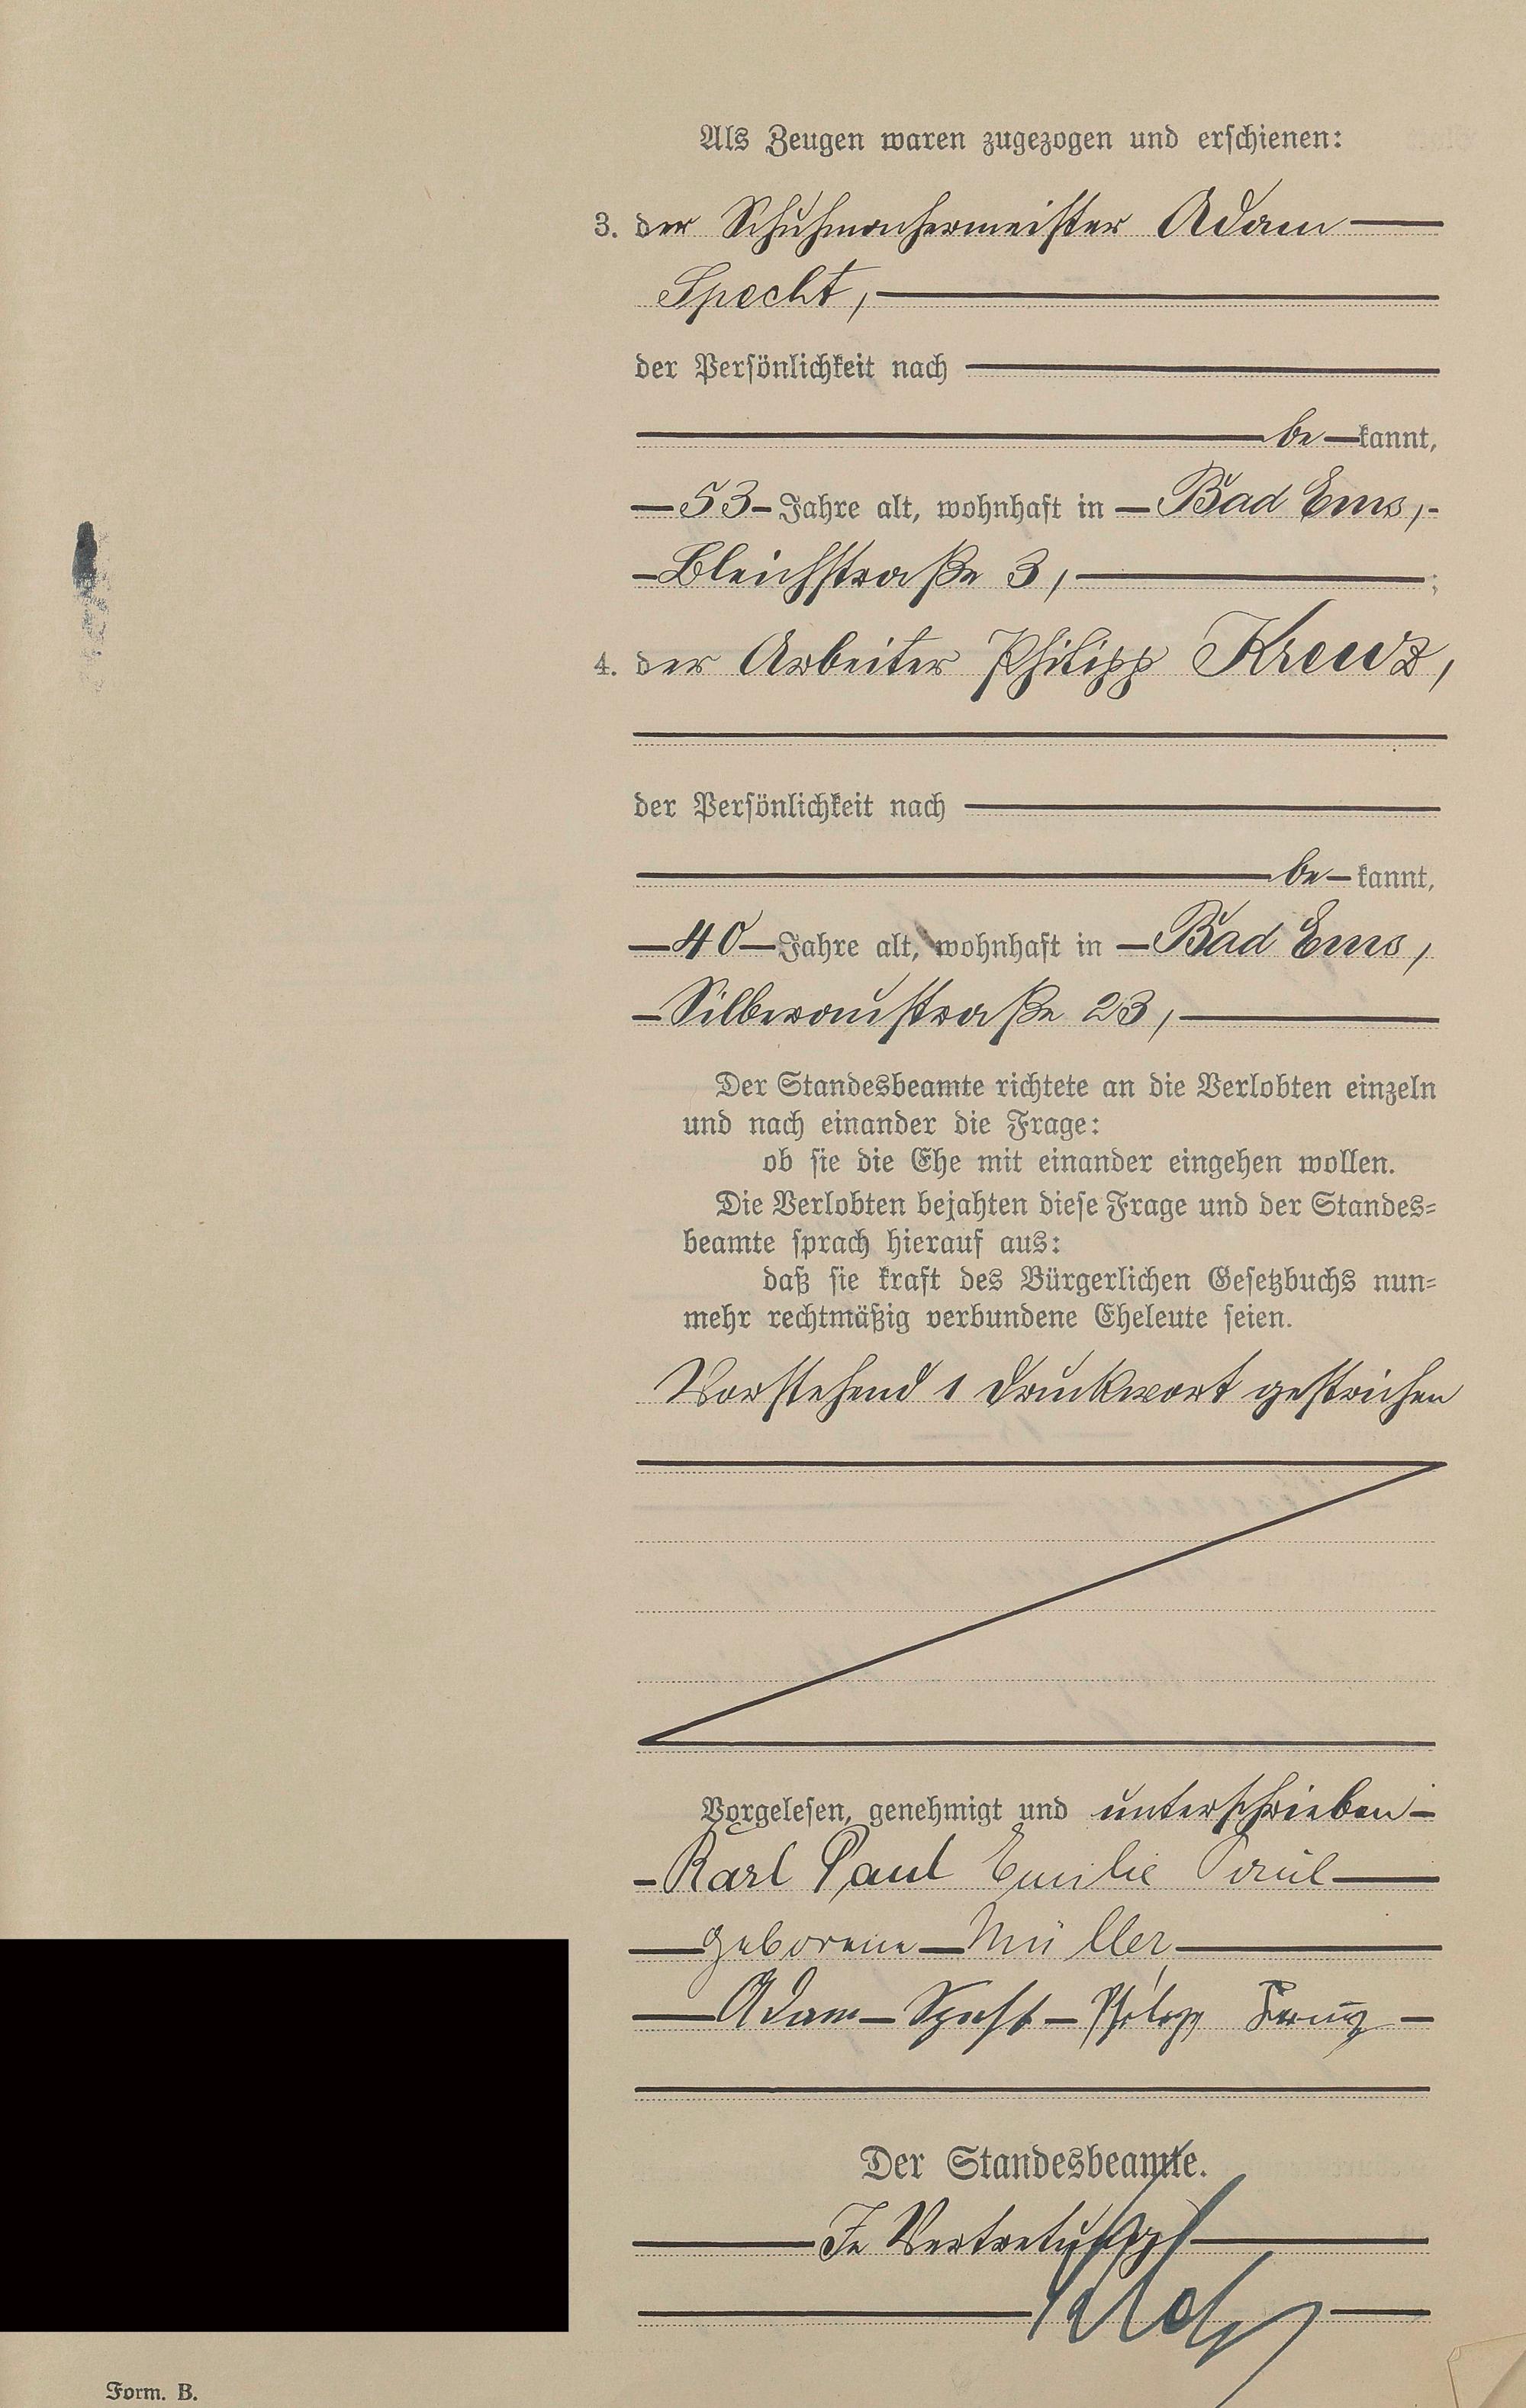 Als Zeugen waren zugezogen und erschienen:
3. der Schuhmachermeister Adam
Specht,
der Persönlichkeit nach
be kannt,
53 Jahre alt, wohnhaft in Bad Ems,
Bleichstraße 3, ;
4. der Arbeiter Philipp Kreuz,
der Persönlichkeit nach
be kannt,
40 Jahre alt, wohnhaft in Bad Ems,
Silberaustraße 23,
Der Standesbeamte richtete an die Verlobten einzeln
und nach einander die Frage:
ob sie die Ehe mit einander eingehen wollen.
Die Verlobten bejahten diese Frage und der Standes-
beamte sprach hierauf aus:
daß sie kraft des Bürgerlichen Gesetzbuchs nun-
mehr rechtmäßig verbundene Eheleute seien.
Vorstehend 1 Druckwort gestrichen
Vorgelesen, genehmigt und unterschrieben
Karl Paul Emilie Paul
geborene Müller
Adam Specht Philipp Kreuz
Der Standesbeamte.
In Vertretung
Form. B.